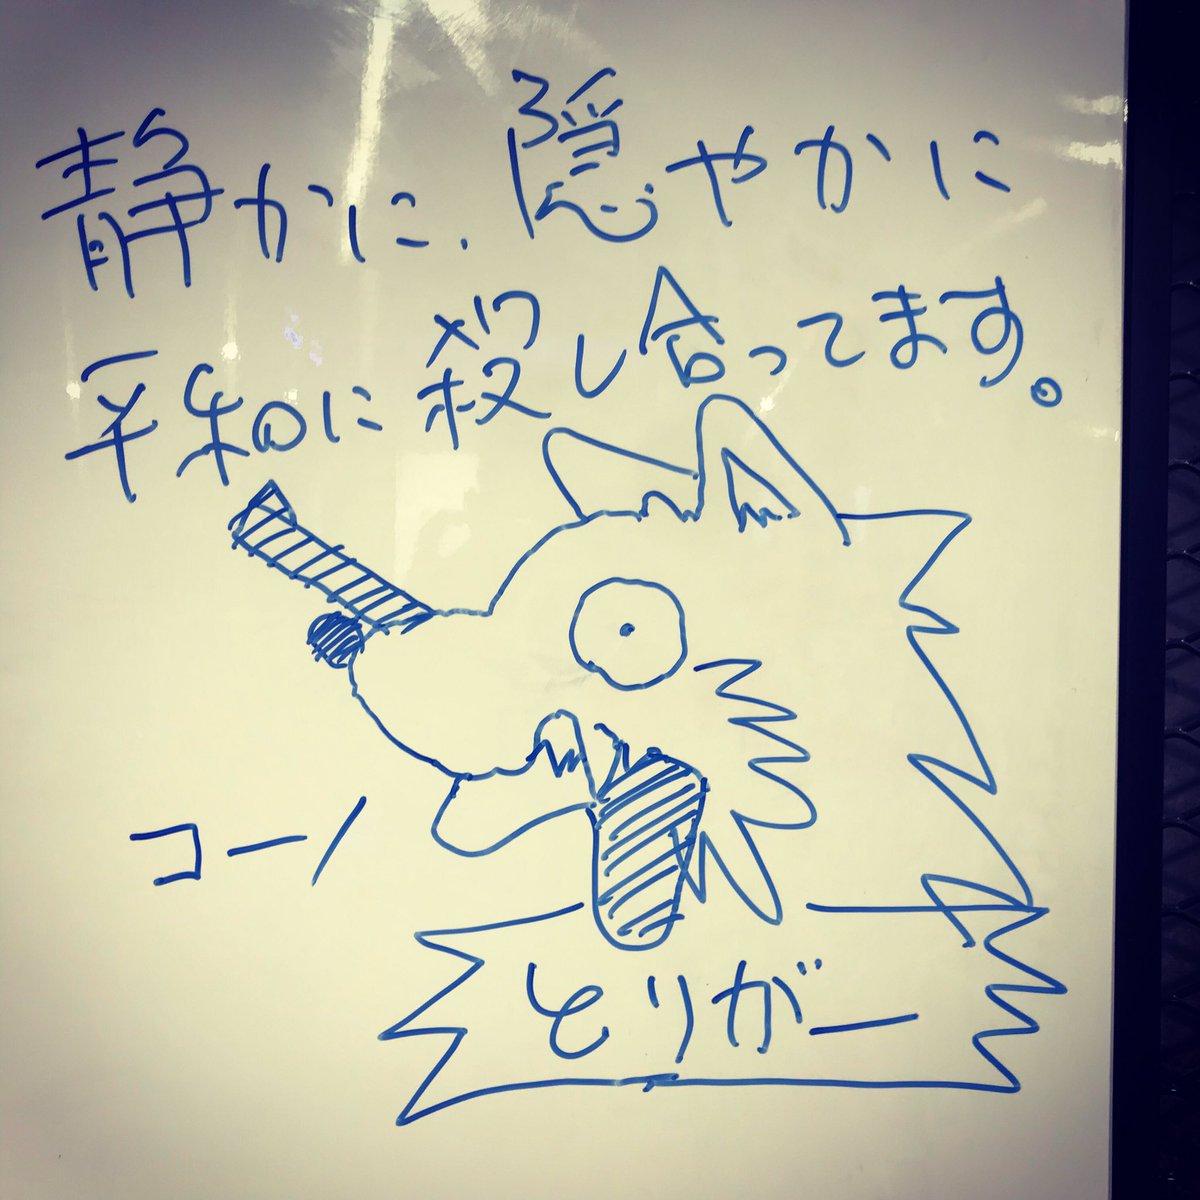 静かに、隠やかに
平和に殺し合ってます。
コーノ
とりがー